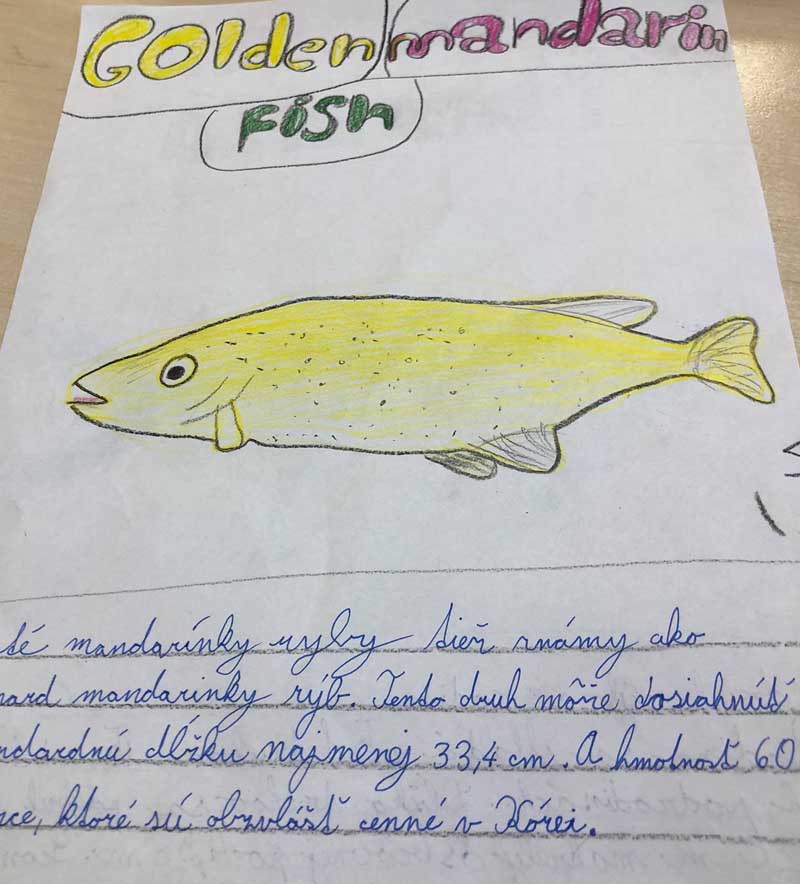 Golden mandarin
Fish
té mandarínky ryby tiež známy ako
pard mandarinky rýb. Tento druh môže dosiahnúť
ndardnú dĺžku najmenej 33,4 cm. A hmotnosť 60
ce, ktoré sú obzvlášť cenné v Kórei.